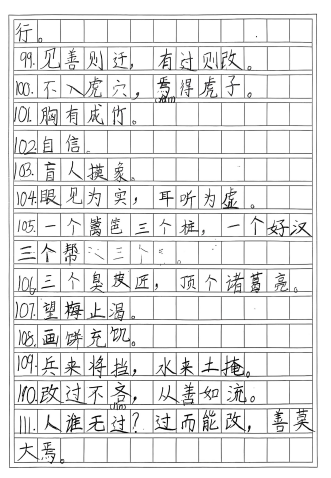 行。
99.见善则迁，有过则改。
100.不入虎穴，焉得虎子。
101.胸有成竹。
102.自信。
103.盲人摸象。
104.眼见为实，耳听为虚。
105.一个篱笆三个桩，一个好汉
三个帮
106.三个臭皮匠，顶个诸葛亮。
107.望梅止渴。
108.画饼充饥。
109.兵来将挡，水来土掩。
110.改过不吝，从善如流。
111.人谁无过？过而能改，善莫
大焉。